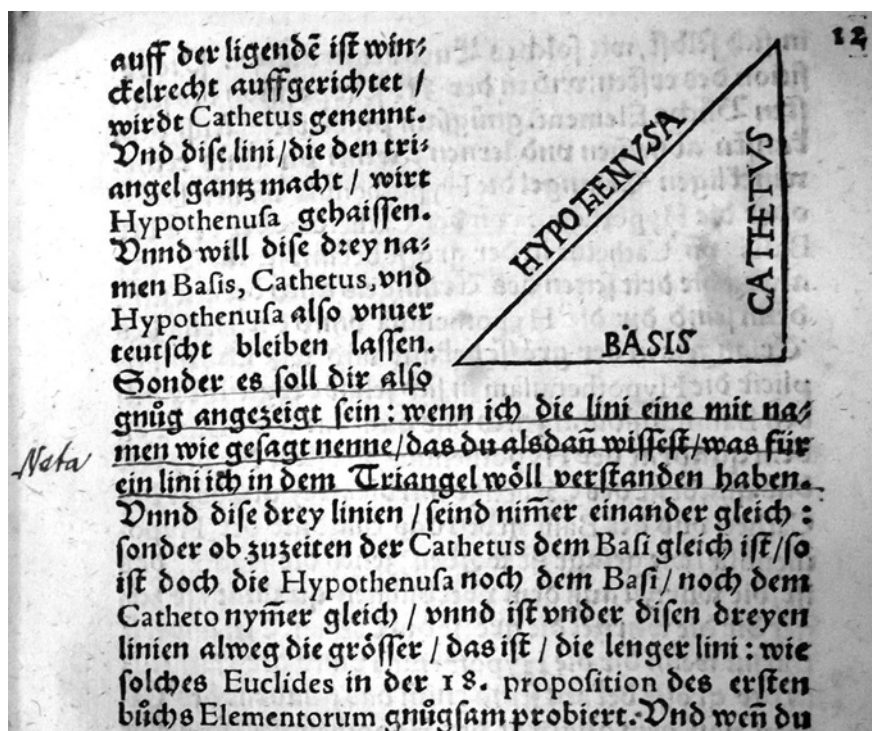 12
auff der ligendē ist win⸗
ckelrecht auffgerichtet /
wirdt Cathetus genennt.
Vnd dise lini / die den tri⸗
angel gantz macht / wirt
Hypothenusa gehaissen.
Vnnd will dise drey na⸗
men Basis, Cathetus, vnd
Hypothenusa also vnuer
teutscht bleiben lassen.
Sonder es soll dir also
gnůg angezeigt sein : wenn ich die lini eine mit na⸗
men wie gesagt nenne / das du alsdañ wissest / was für
ein lini ich in dem Triangel wöll verstanden haben.
Vnnd dise drey linien / seind nim̃er einander gleich :
sonder ob zuzeiten der Cathetus dem Basi gleich ist / so
ist doch die Hypothenusa noch dem Basi / noch dem
Catheto nym̃er gleich / vnnd ist vnder disen dreyen
linien alweg die grösser / das ist / die lenger lini : wie
solches Euclides in der 18. proposition des ersten
bůchs Elementorum gnůgsam probiert. Vnd weñ du
HYPOTHENVSA
CATHETVS
BASIS
Nota